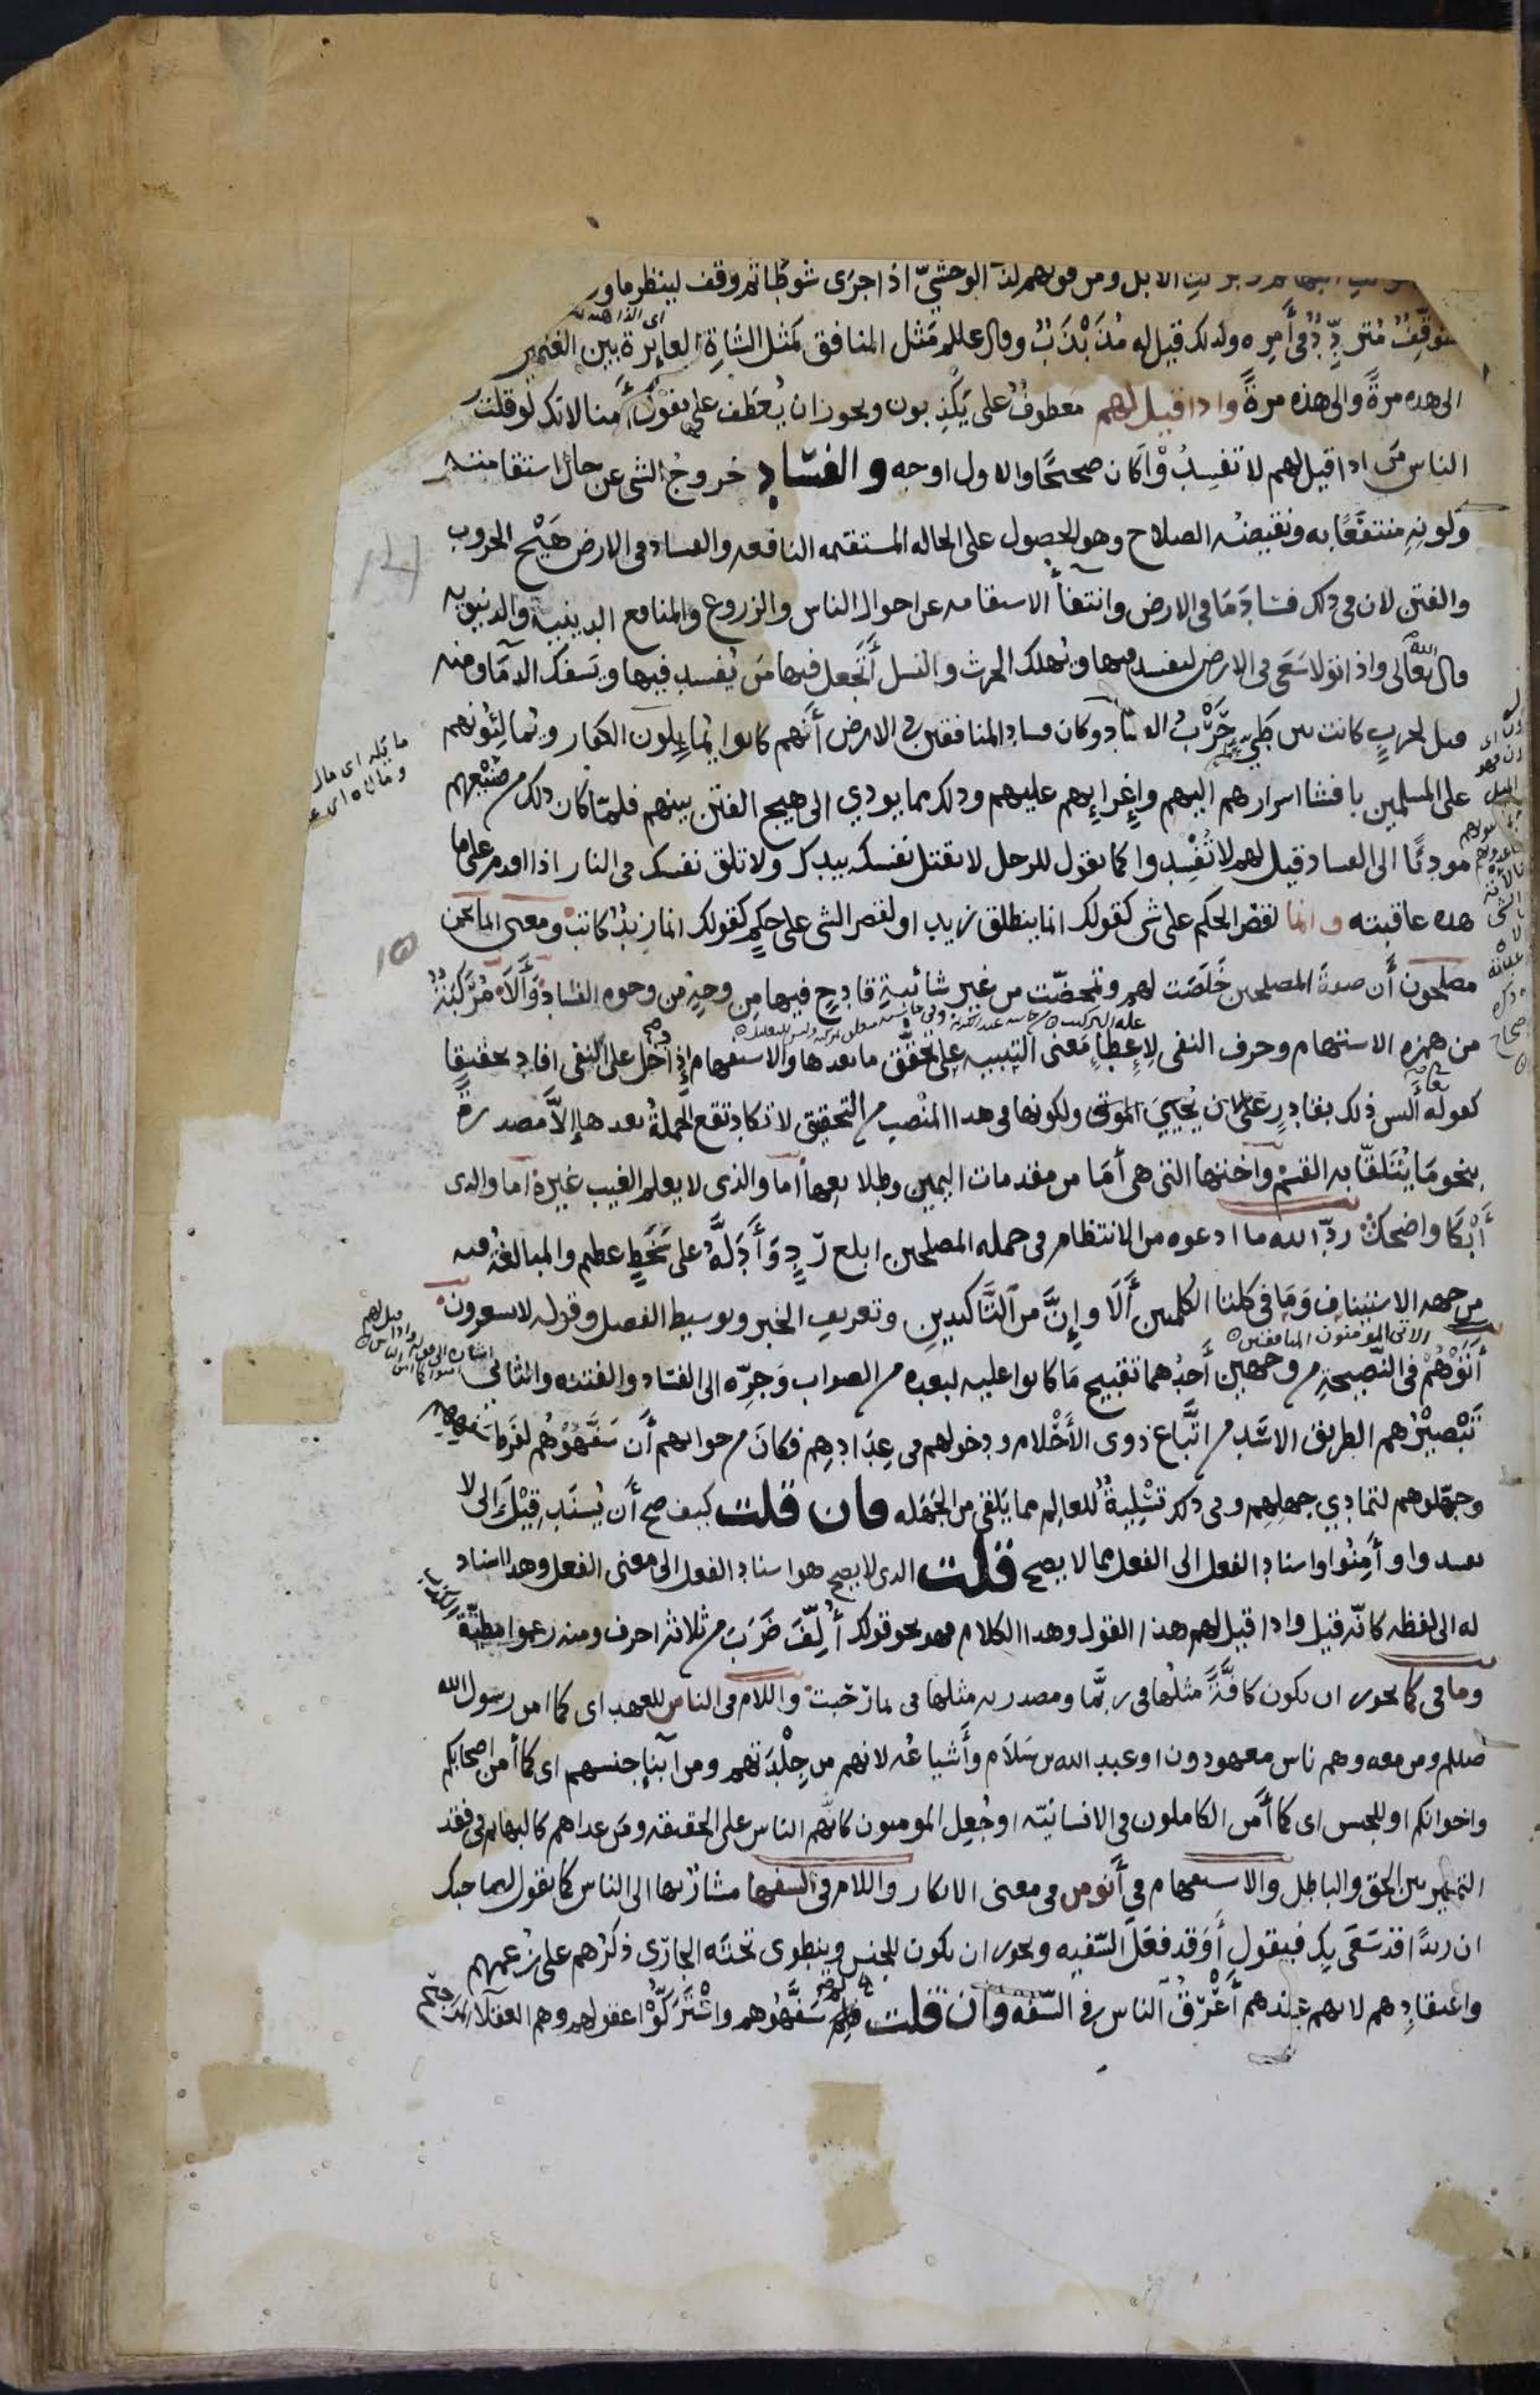 الابل ومن قولهم كذب الوحشيّ اذا جرى شوطا ثم وقف لينظر ما ور
متوقف مُتردِّدٌ في أمره ولدلك قيل له مُذَبْذَبٌ وقال عللم مَثل المنافق كمثل الشاة العايرة بين الغنمين
الى هده مرةً والى هذه مرةً وادا قيل لهم معطوفٌ على يَكْذِبون ويحوز ان يُعطَف على يقول امنا لانك لو قلت
الناس من اذا قيل لهم لا تُفسِدُوا كان صحيحًا والاول اوجه والفساد خروج الشي عن حال استقامته
وكونِهِ منتفَعًا به ونقيضُه الصلاح وهو الحصول على الحاله المستقيمه النافعه والفساد في الارض هَيْج الحروب
والفتن لان في ذلك فسادَ ما في الارض وانتفأ الاستقامه عن احوال الناس والزروع والمنافع الدينية والدنيويه
قال الله تعالى واذا تولا سَعَى في الارض ليفسد فيها ويُهلك الحرث والنسل أَتَجعل فيها من يُفسد فيها ويَسفك الدمآ ومنه
قيل لحربٍ كانت بين طيّ حَرْبُ الفساد وكان فساد المنافقين في الارض أَنهم كانوا يُمايلون الكفار ويُمالِئونهم
على المسلمين بافشا اسرارهم اليهم وإِغرايهم عليهم ودلك مما يودي الى هيج الفتن بينهم فلمّا كان ذلك من صنيعهم
موديًا الى الفساد قيل لهم لا تُفْسِدوا كما تقول للرجل لا تقتل نفسك بيدك ولا تلق نفسك في النار اذا اقدم على ما
هده عاقبته وانما لقصر الحكم على شي كقولك انما ينطلق زيد او لقصر الشي على حكمٍ كقولك انما زيد كاتب ومعنى انما نحن
مصلحون أَن صفةَ المصلحين خَلَصَت لهم وتمحضّت من غير شائبةٍ قادحٍ فيها من وجهٍ من وجوه الفساد وأَلَا مُرَكَّبَةٌ
من همزه الاستفهام وحرف النفى لإعطاءِ معنى التنبيه على تحقّق ما بعدها والاستفهام إذا دخل على النفى افاد تحقيقا
كقوله أليس ذلك بقادرٍ على ان يُحيِيَ الموتى ولكونها في هدا المنصب من التحقيق لا تكاد تقع الجملةُ بعدها إلاّ مصدرةً
بنحو مَا يُتَلقّا به القسم وأختها التي هي أَمَا من مقدمات اليمين وطلايعها أما والذي لا يعلم الغيب غيره أما والدى
أَبْكَا واضحك ردّ الله ما ادعوه من الانتظام في جمله المصلحين ابلغ رَدٍّ وأَدَلَّه على سَخَطٍ عظيم والمبالغة فيه
من جهه الاستيناف وَمَا في كلتا الكلمتين أَلَا وإِنَّ من التَّأكيدين وتعريف الخبر وتوسيط الفصل وقوله لا يشعرون
أتَوْهُمْ في النّصيحة من وجهين أَحدُهما تقبيح مَا كانوا عليه لبعده من الصواب وَجرِّه الى الفساد والفتنه والثاني
تَبْصِيرُهم الطريق الاشَد من اتَّباع ذوى الأَحْلام ودخولهم في عِدَادِهِم فكانَ من جوابهم أَن سَفَّهُوْهُم لفَرط سَفههم
وجهّلوهم لتمادي جهلهم وفى ذلك تَسْلِيةٌ للعالِم مما يَلقى من الجَهَله فان قلت كيف صح أَن يُسنَد قِيْلَ الى لا
تفسدوا وأَمِنُوا واسناد الفعل الى الفعل مما لا يصح قلت الدى لا يصح هو اسناد الفعل الى معنى الفعل وهدا اسناد
له الى لفظه كانّه قيل وادا قيل لهم هذا القول وهدا الكلام فهو نحو قولك أُلِّفَ ضَرَبَ من ثلاثه احرف ومنه زعموا مطيّة الكذب
وما في كما يجوز ان تكون كافَّةً مثلُها في ربَّما ومصدريه مثلها في بما رَحُبت واللام في الناس للعهد اى كما امن رسول الله
صللم ومن معه وهم ناس معهودون او عبد الله بن سَلَام وأَشياعُه لانهم من جِلْدَتهم ومن أبنآ جنسهم اى كما أمن اصحابكم
واخوانكم او للجنس اى كما أَمن الكاملون في الانسانيّه او جُعِل المومنون كانّهم الناس على الحقيقه ومَن عداهم كالبهائم في فقد
التمييز بين الحق والباطل والاستفهام في أَنومن في معنى الانكار واللام في السفها مشارٌ بها الى الناس كما تقول لصاحبك
ان زيدًا قد سَعَى بك فيقول أَوَقَد فعَل السّفيه ويجوز ان تكون للجنس وينطوى تحته الجارى ذكرُهم على زعمهم
واعتقادِهم لانهم عندهم أَعْرَقُ الناس في السّفه وان قلت فلِمَ سَفَّهُوهم واسْتَرَكُّوْا عقولهم وهم العقلآ